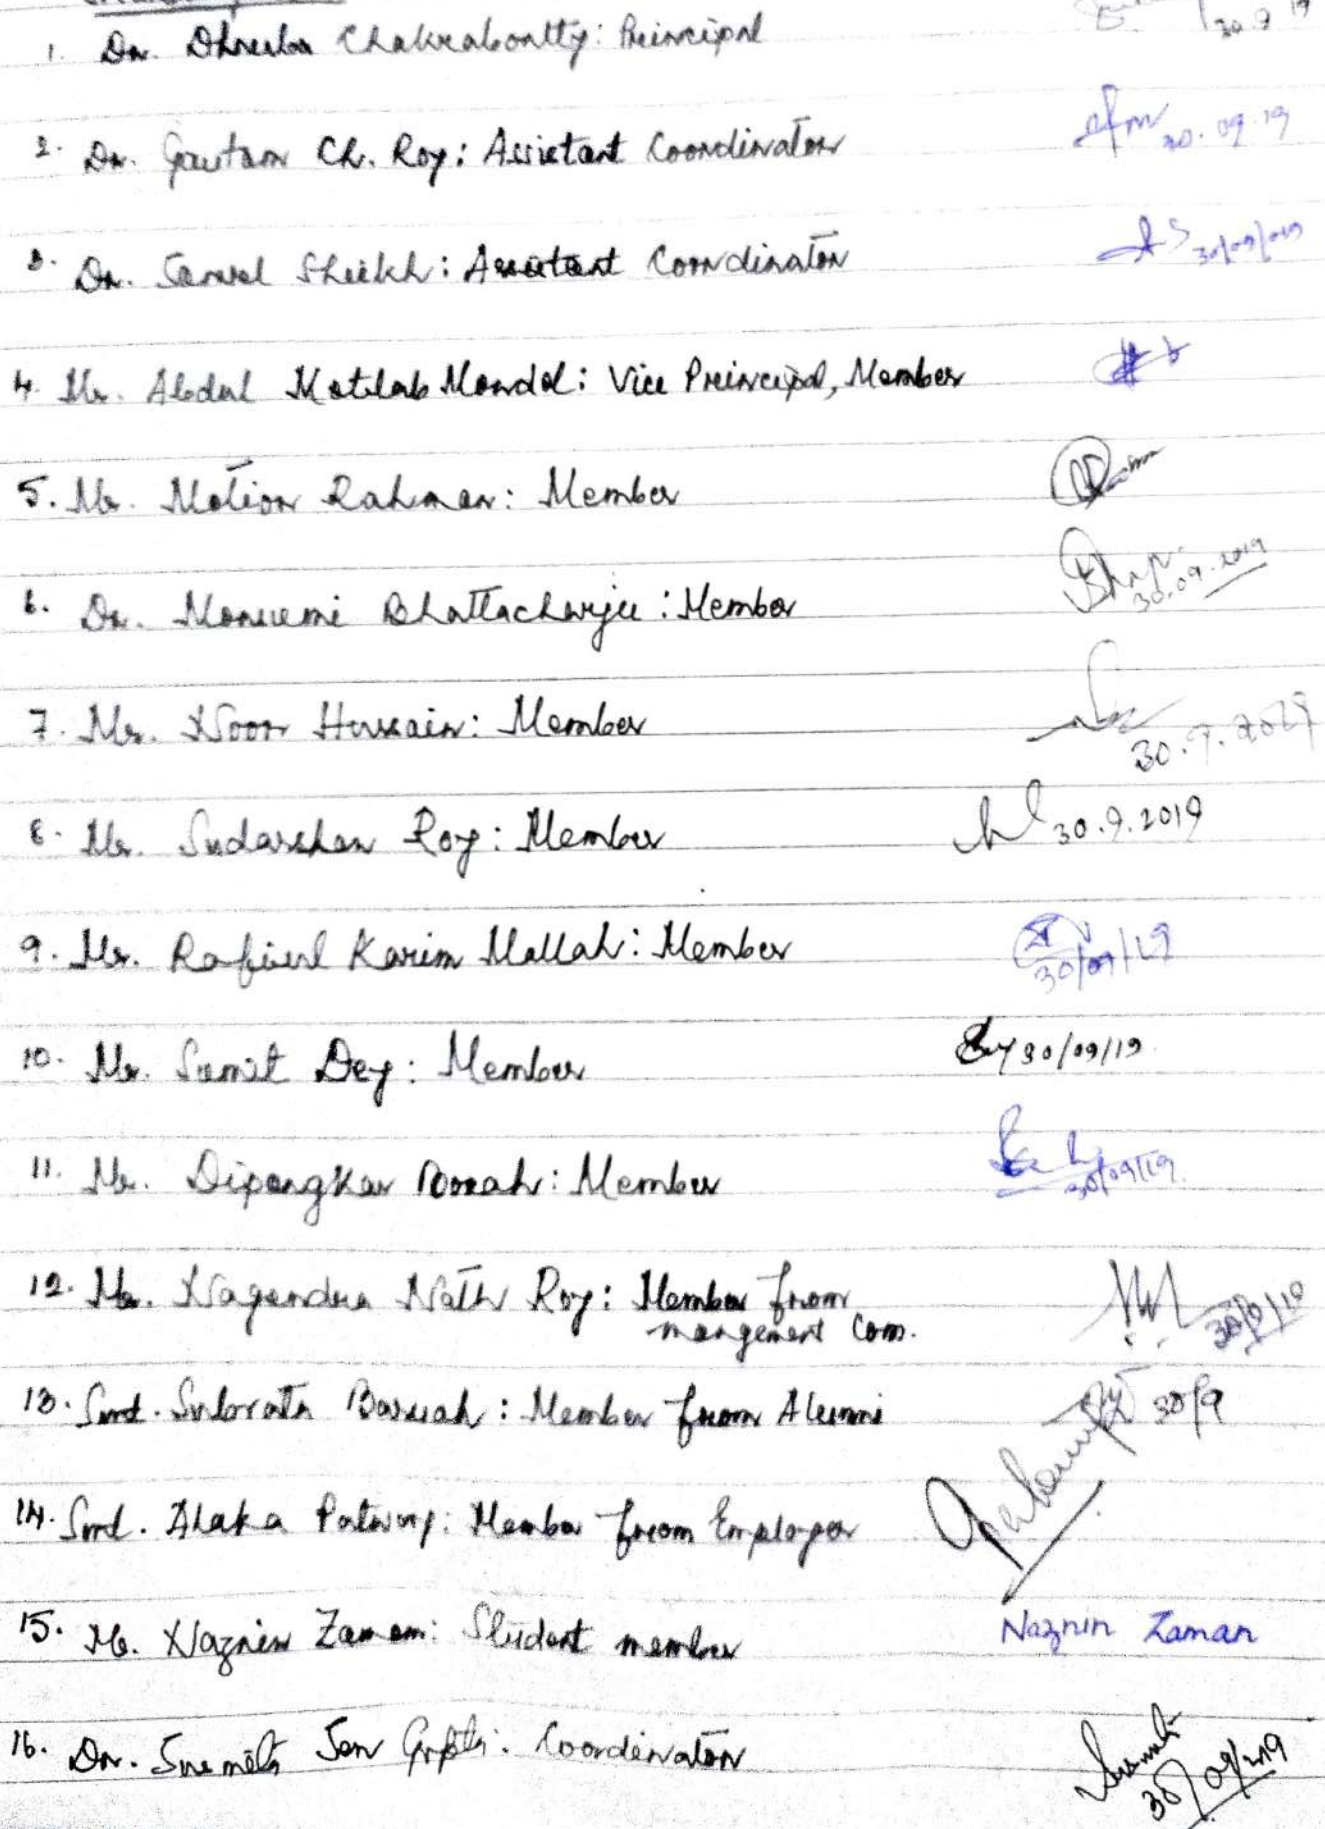 1. Dr. Dhruba Chakrabortty: Preincipal 30.9.19
2. Dr. Gautam Ch. Roy: Assistant Coordinator 30.09.19
3. Dr. Sheikh: Assistant Coordinator 30/09/019
4. Mr. Abdul Motlab Mondal: Vice Preincipal, Member
5. Mr. Motior Rahman: Member
6. Dr. Mousumi Bhattacharjee: Member 30.09.2019
7. Mr. Noor Hussain: Member 30.9.2019
8. Mr. Sudarshan Roy: Member 30.9.2019
9. Mr. Rafiul Karim Mallah: Member 30/09/19
10. Mr. Sumit Dey: Member 30/09/19
11. Mr. Dipangkar Borah: Member 30/09/19
12. Mr. Nagendra Nath Roy: Member from 30/9/19
mangement Com.
13. Smt. Subrata Baruah: Member from Alumni 30/9
14. Smt. Alaka Patwary: Member from Employer
15. Naznin Zaman: Student member Naznin Zaman
16. Dr. Sen Gupta: Coordinator
30/09/2019